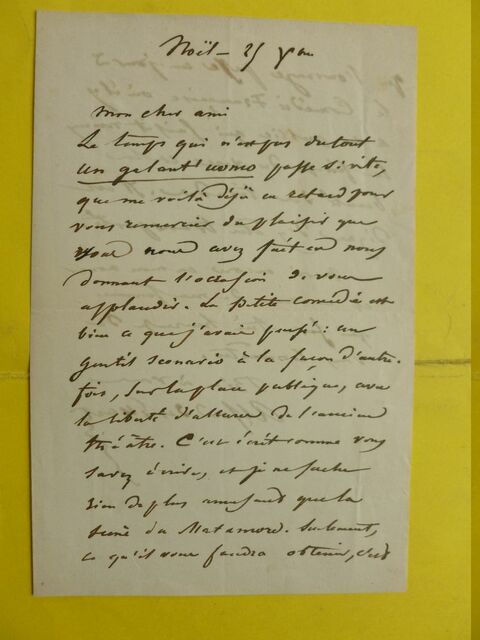 Noël - 25 Xbre
mon cher ami
Le temps qui n'est pas du tout
un galant'uomo passe si vite,
que me voilà déjà en retard pour
vous remercier du plaisir que
vous nous avez fait en nous
donnant l'occasion de vous
applaudir. La petite comédie est
bien ce que j'avais pensé : un
gentil scenario à la façon d'autre-
fois, sur la place publique, avec
la liberté d'allures de l'ancien
théâtre. C'est écrit comme vous
savez écrire, et je ne sache
rien de plus amusant que la
scène du Matamore. Seulement,
ce qu'il vous faudra obtenir, c'est